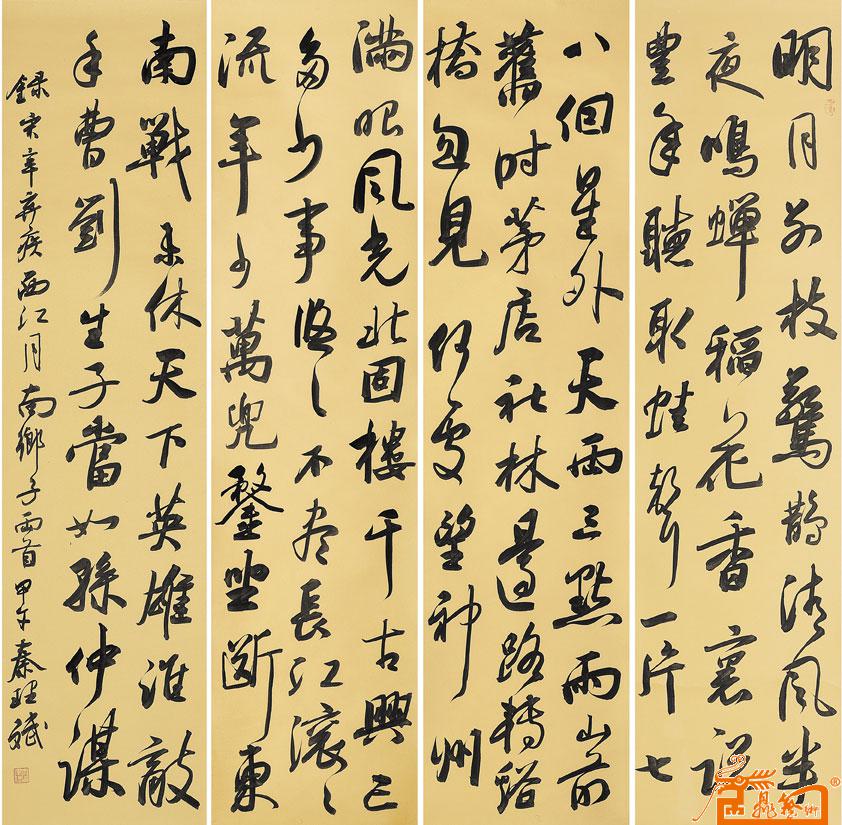 明月別枝驚鵲清風半
夜鳴蟬稻花香裏說
豐年聽取蛙聲一片七
八個星外天兩三點雨山前
舊時茅店社林邊路轉谿
橋忽見 何處望神州
滿眼風光北固樓千古興亡
多少事悠〻不盡長江滾〻
流年少萬兜鍪坐斷東
南戰未休天下英雄誰敵
手曹劉生子當如孫仲謀
錄宋辛棄疾西江月南鄉子兩首甲午秦理斌